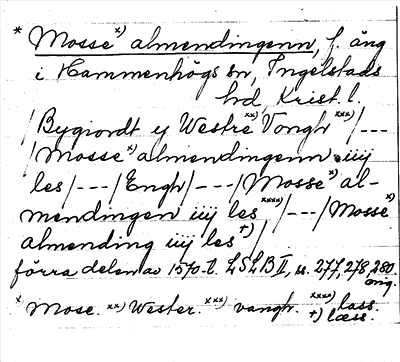 * Mosse x) almendingenn, f. äng
i Hammenhögs sn, Ingelstads
hd, Krist. l.
/Bygiordt y Westre xx) Vongh xxx)/---
/Mosse x) almendingenn iiij
les/---/Engh/---/Mosse x) al-
mendingen iiij les xxxx)/---/Mosse x)
almending iiij les +)/
förra delen av 1570-t. LSLB II, s. 277, 278, 280
orig.
x Mose. xx) Wester. xxx) vangh. xxxx) lass.
+) læss.